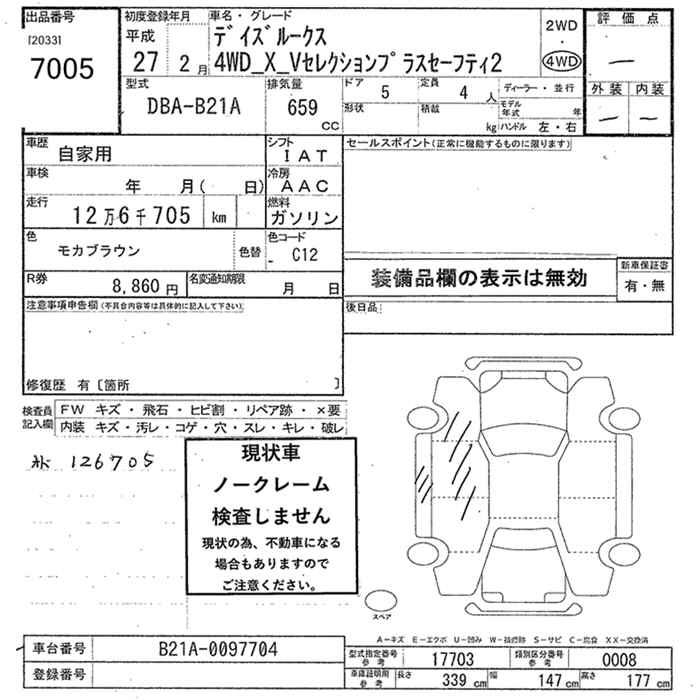 出品番号
[2033]
7005
初度登録年月
平成
27 2月
車名・グレード
デイズルークス
4WD_X_Vセレクションプラスセーフティ2
2WD
・
4WD
評価点
―
外装 内装
― ―
型式
DBA-B21A
排気量
659
cc
ドア 5
定員 4 人
形状
積載 kg
ディーラー・並行
モデル年式 年
ハンドル 左・右
車歴 自家用
シフト IAT
車検 年 月( 日)
冷房 AAC
走行 12万6千705 km
燃料 ガソリン
色 モカブラウン
色替
色コード
- C12
R券 8,860円
名変通知期限 月 日
セールスポイント(正常に機能するものに限ります)
装備品欄の表示は無効
新車保証書
有・無
注意事項申告欄(不具合内容等は具体的に記入して下さい)
後日品
修復歴 有〔箇所 〕
検査員記入欄
FW キズ・飛石・ヒビ割・リペア跡・×要
内装 キズ・汚レ・コゲ・穴・スレ・キレ・破レ
126705
現状車
ノークレーム
検査しません
現状の為、不動車になる
場合もありますので
ご注意ください。
スペア
A-キズ E-エクボ U-凹み W-補修跡 S-サビ C-腐食 XX-交換済
車台番号 B21A-0097704
登録番号
型式指定番号 参考 17703
類別区分番号 参考 0008
車庫証明用 参考
長さ 339 cm
幅 147 cm
高さ 177 cm